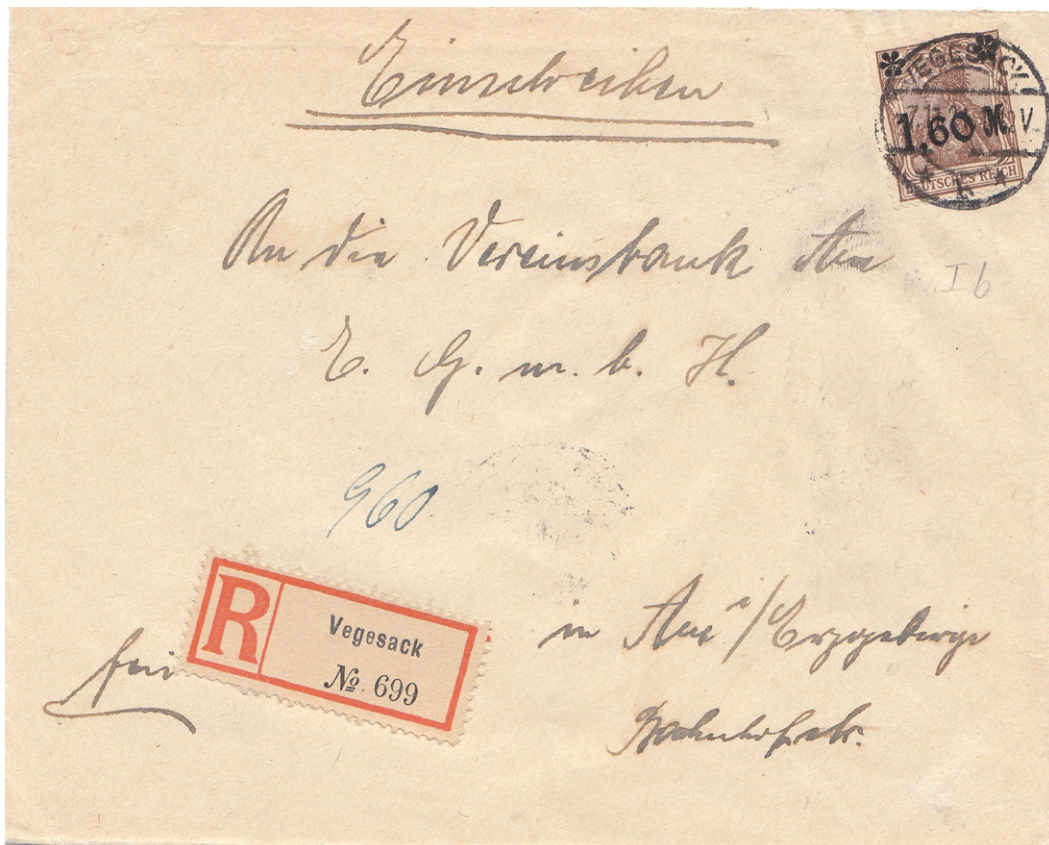 Einschreiben
VEGESACK
1,60 M V.
* b *
DEUTSCHES REICH
An die Vereinsbank Aue
I b
E. G. m. b. H.
960
R Vegesack
№ 699
in Aue i/Erzgebirge
frei
Bahnhofstr.